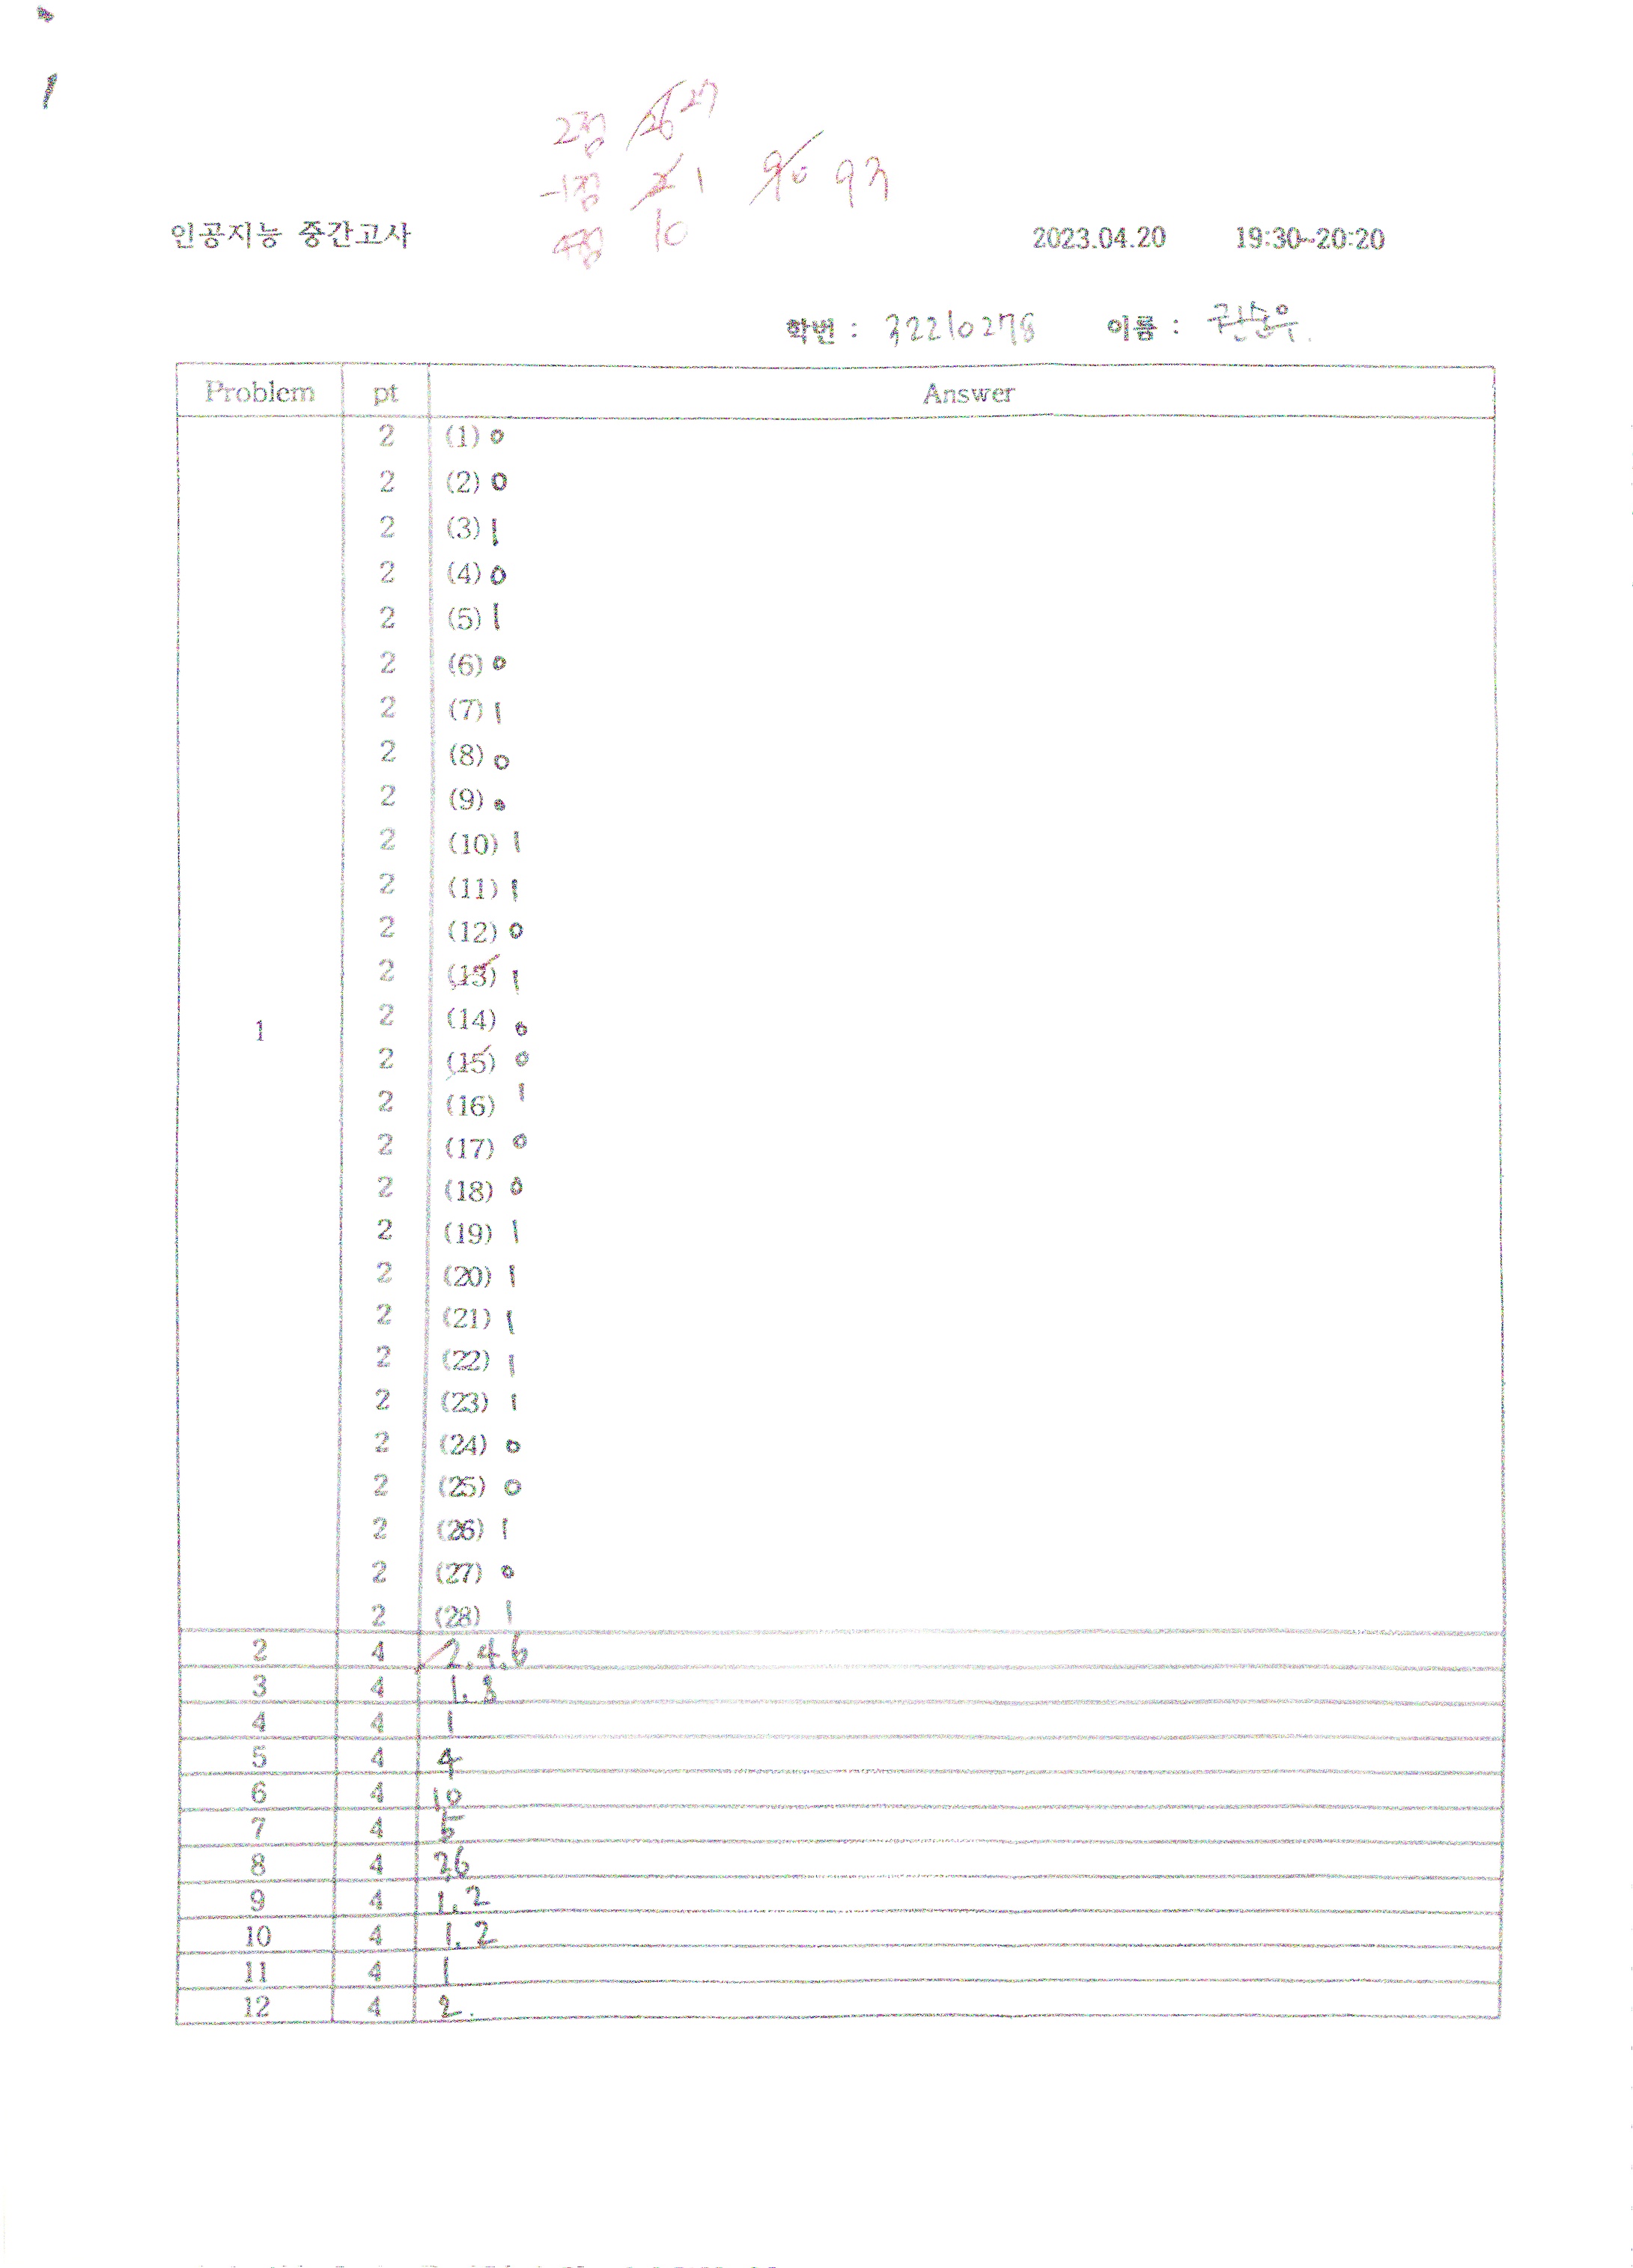 2점 26 27
-1점 2 1 90 93
4점 10
인공지능 중간고사 2023.04.20 19:30~20:20
학번 : 32210278 이름 : 권순우.
Problem pt Answer
2 (1) 0
2 (2) 0
2 (3) 1
2 (4) 0
2 (5) 1
2 (6) 0
2 (7) 1
2 (8) 0
2 (9) 0
2 (10) 1
2 (11) 1
2 (12) 0
2 (13) 1
1 2 (14) 0
2 (15) 0
2 (16) 1
2 (17) 0
2 (18) 0
2 (19) 1
2 (20) 1
2 (21) 1
2 (22) 1
2 (23) 1
2 (24) 0
2 (25) 0
2 (26) 1
2 (27) 0
2 (28) 1
2 4 2.4.6
3 4 1.3
4 4 1
5 4 4
6 4 10
7 4 5
8 4 26
9 4 1.2
10 4 1.2
11 4 1
12 4 2.